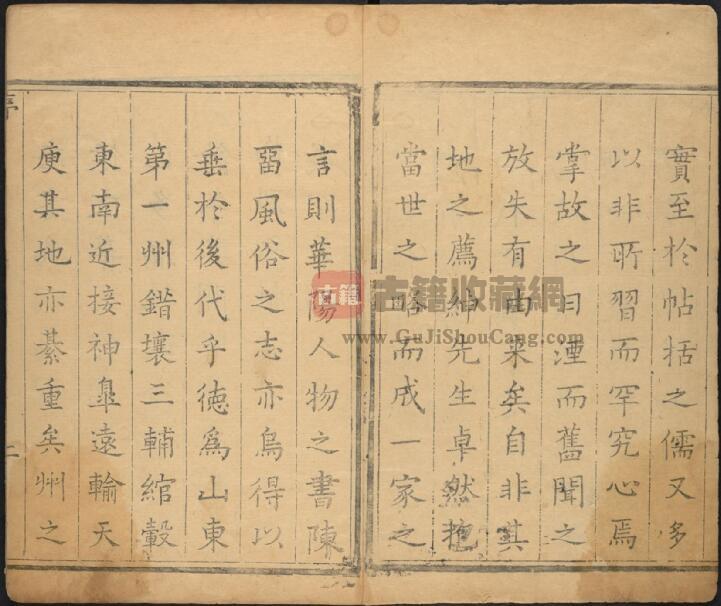 實至於帖括之儒又多
以非所習而罕究心焉
掌故之日湮而舊聞之
放失有由来矣自非其
地之薦紳先生卓然抱
當世之略而成一家之
言則華陽人物之書陳
畱風俗之志亦烏得以
垂於後代乎徳爲山東
第一州錯壤三輔綰轂
東南近接神臯遠輸天
庾其地亦綦重矣州之
序
二
古籍
古籍收藏網
www.GuJiShouCang.com